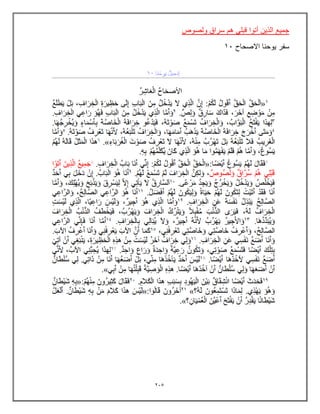 جميع الذين أتوا قبلي هم سراق ولصوص
سفر يوحنا الاصحاح ١٠
إنجيل يوحنا ١٠
الأصحاح العاشر
١«الحق الحق أقول لكم: إن الذي لا يدخل من الباب إلى حظيرة الخراف، بل يطلع
من موضع آخر، فذاك سارق ولص. ٢وأما الذي يدخل من الباب فهو راعي الخراف.
٣لهذا يفتح البواب، والخراف تسمع صوته، فيدعو خرافه الخاصة بأسماء ويخرجها.
٤ومتى أخرج خرافه الخاصة يذهب أمامها، والخراف تتبعه، لأنها تعرف صوته. ٥وأما
الغريب فلا تتبعه بل تهرب منه، لأنها لا تعرف صوت الغرباء». ٦هذا المثل قاله لهم
يسوع، وأما هم فلم يفهموا ما هو الذي كان يكلمهم به.
٧فقال لهم يسوع أيضا: «الحق الحق أقول لكم: إني أنا باب الخراف. ٨جميع الذين أتوا
قبلي هم سراق ولصوص، ولكن الخراف لم تسمع لهم. ٩أنا هو الباب. إن دخل بي أحد
فيخلص ويدخل ويخرج ويجد مرعى. ١٠السارق لا يأتي إلا ليسرق ويذبح ويهلك، وأما
أنا فقد أتيت لتكون لهم حياة وليكون لهم أفضل. ١١أنا هو الراعي الصالح، والراعي
الصالح يبذل نفسه عن الخراف. ١٢وأما الذي هو أجير، وليس راعيا، الذي ليست
الخراف له، فيرى الذئب مقبلا ويترك الخراف ويهرب، فيخطف الذئب الخراف
ويبددها. ١٣والأجير يهرب لأنه أجير، ولا يبالي بالخراف. ١٤أما أنا فإني الراعي
الصالح، وأعرف خاصتي وخاصتي تعرفني، ١٥كما أن الآب يعرفني وأنا أعرف الآب.
وأنا أضع نفسي عن الخراف. ١٦ولي خراف أخر ليست من هذه الحظيرة، ينبغي أن آتي
بتلك أيضا فتسمع صوتي، وتكون رعية واحدة وراع واحد. ١٧لهذا يحبني الآب، لأني
أضع نفسي لآخذها أيضا. ١٨ليس أحد يأخذها مني، بل أضعها أنا من ذاتي. لي سلطان
أن أضعها ولي سلطان أن آخذها أيضا. هذه الوصية قبلتها من أبي».
١٩فحدث أيضا انشقاق بين اليهود بسبب هذا الكلام. ٢٠فقال كثيرون منهم: «به شيطان
وهو يهذي. لماذا تستمعون له؟» ٢١آخرون قالوا: «ليس هذا كلام من به شيطان. ألعل
شيطانا يقدر أن يفتح أعين العميان؟».
٢٠٨